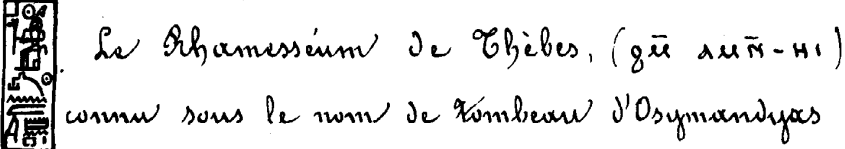 Le Rhamesséum de Thèbes,
connu sous le nom de tombeau d'Osymandyas